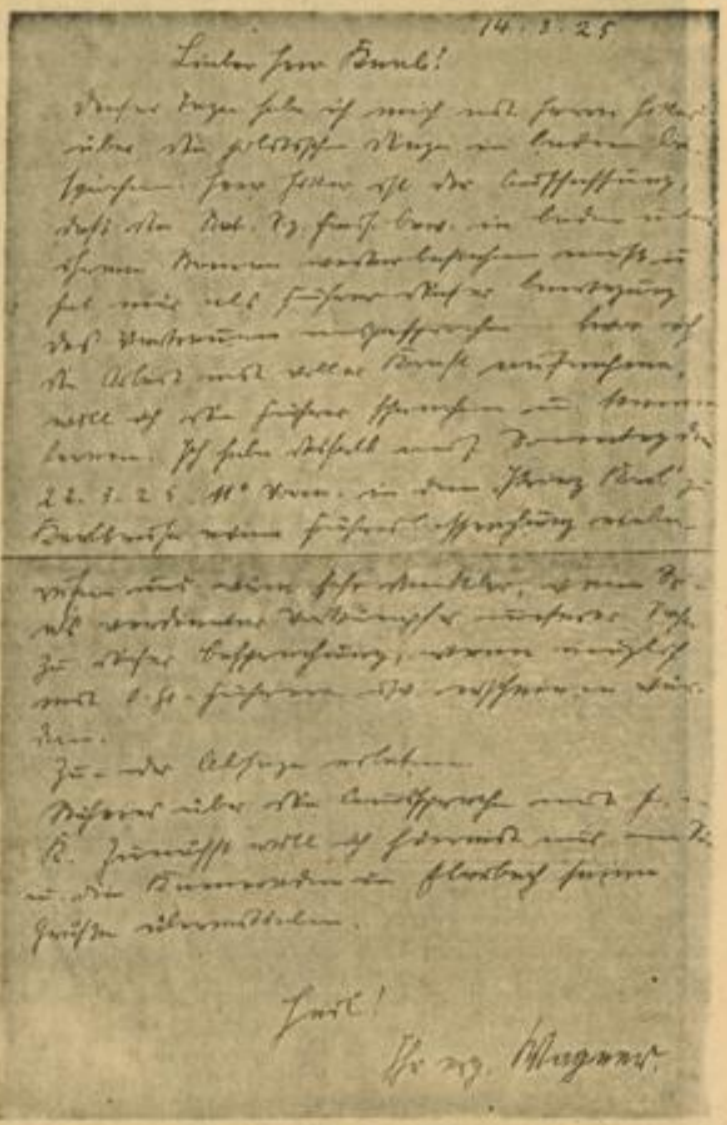 14. 3. 25
Lieber Herr Kraul!
Dieser Tage habe ich mich mit Herrn Hitler
über die politischen Dinge in Baden be-
sprochen. Herr Hitler ist der Auffassung,
daß die Nat. Soz. Freih. bew. in Baden unter
ihrem Namen weiterbestehen muß u
hat mir als Führer dieser Bewegung
das Vertrauen ausgesprochen. Bevor ich
die Arbeit mit voller Kraft aufnehme,
will ich die Führer sprechen u. kennen
lernen. Ich habe deshalb auf Sonntag den
22. 3. 25 11° Vorm. in dem „Prinz Karl" zu
Karlsruhe eine Führerbesprechung einbe-
rufen und wäre sehr dankbar, wenn Sie
als verdienter Vorkämpfer unserer Sache
zu dieser Besprechung, wenn möglich
mit O. Gr. Führern usw erscheinen wür-
den.
Zu- oder Absage erbeten.
Näheres über die Aussprache mit H. in
K. Zunächst will ich hiermit nur an Sie
u. die Kameraden in Eberbach seine
Grüße übermitteln.
Heil!
Ihr erg. Wagner.